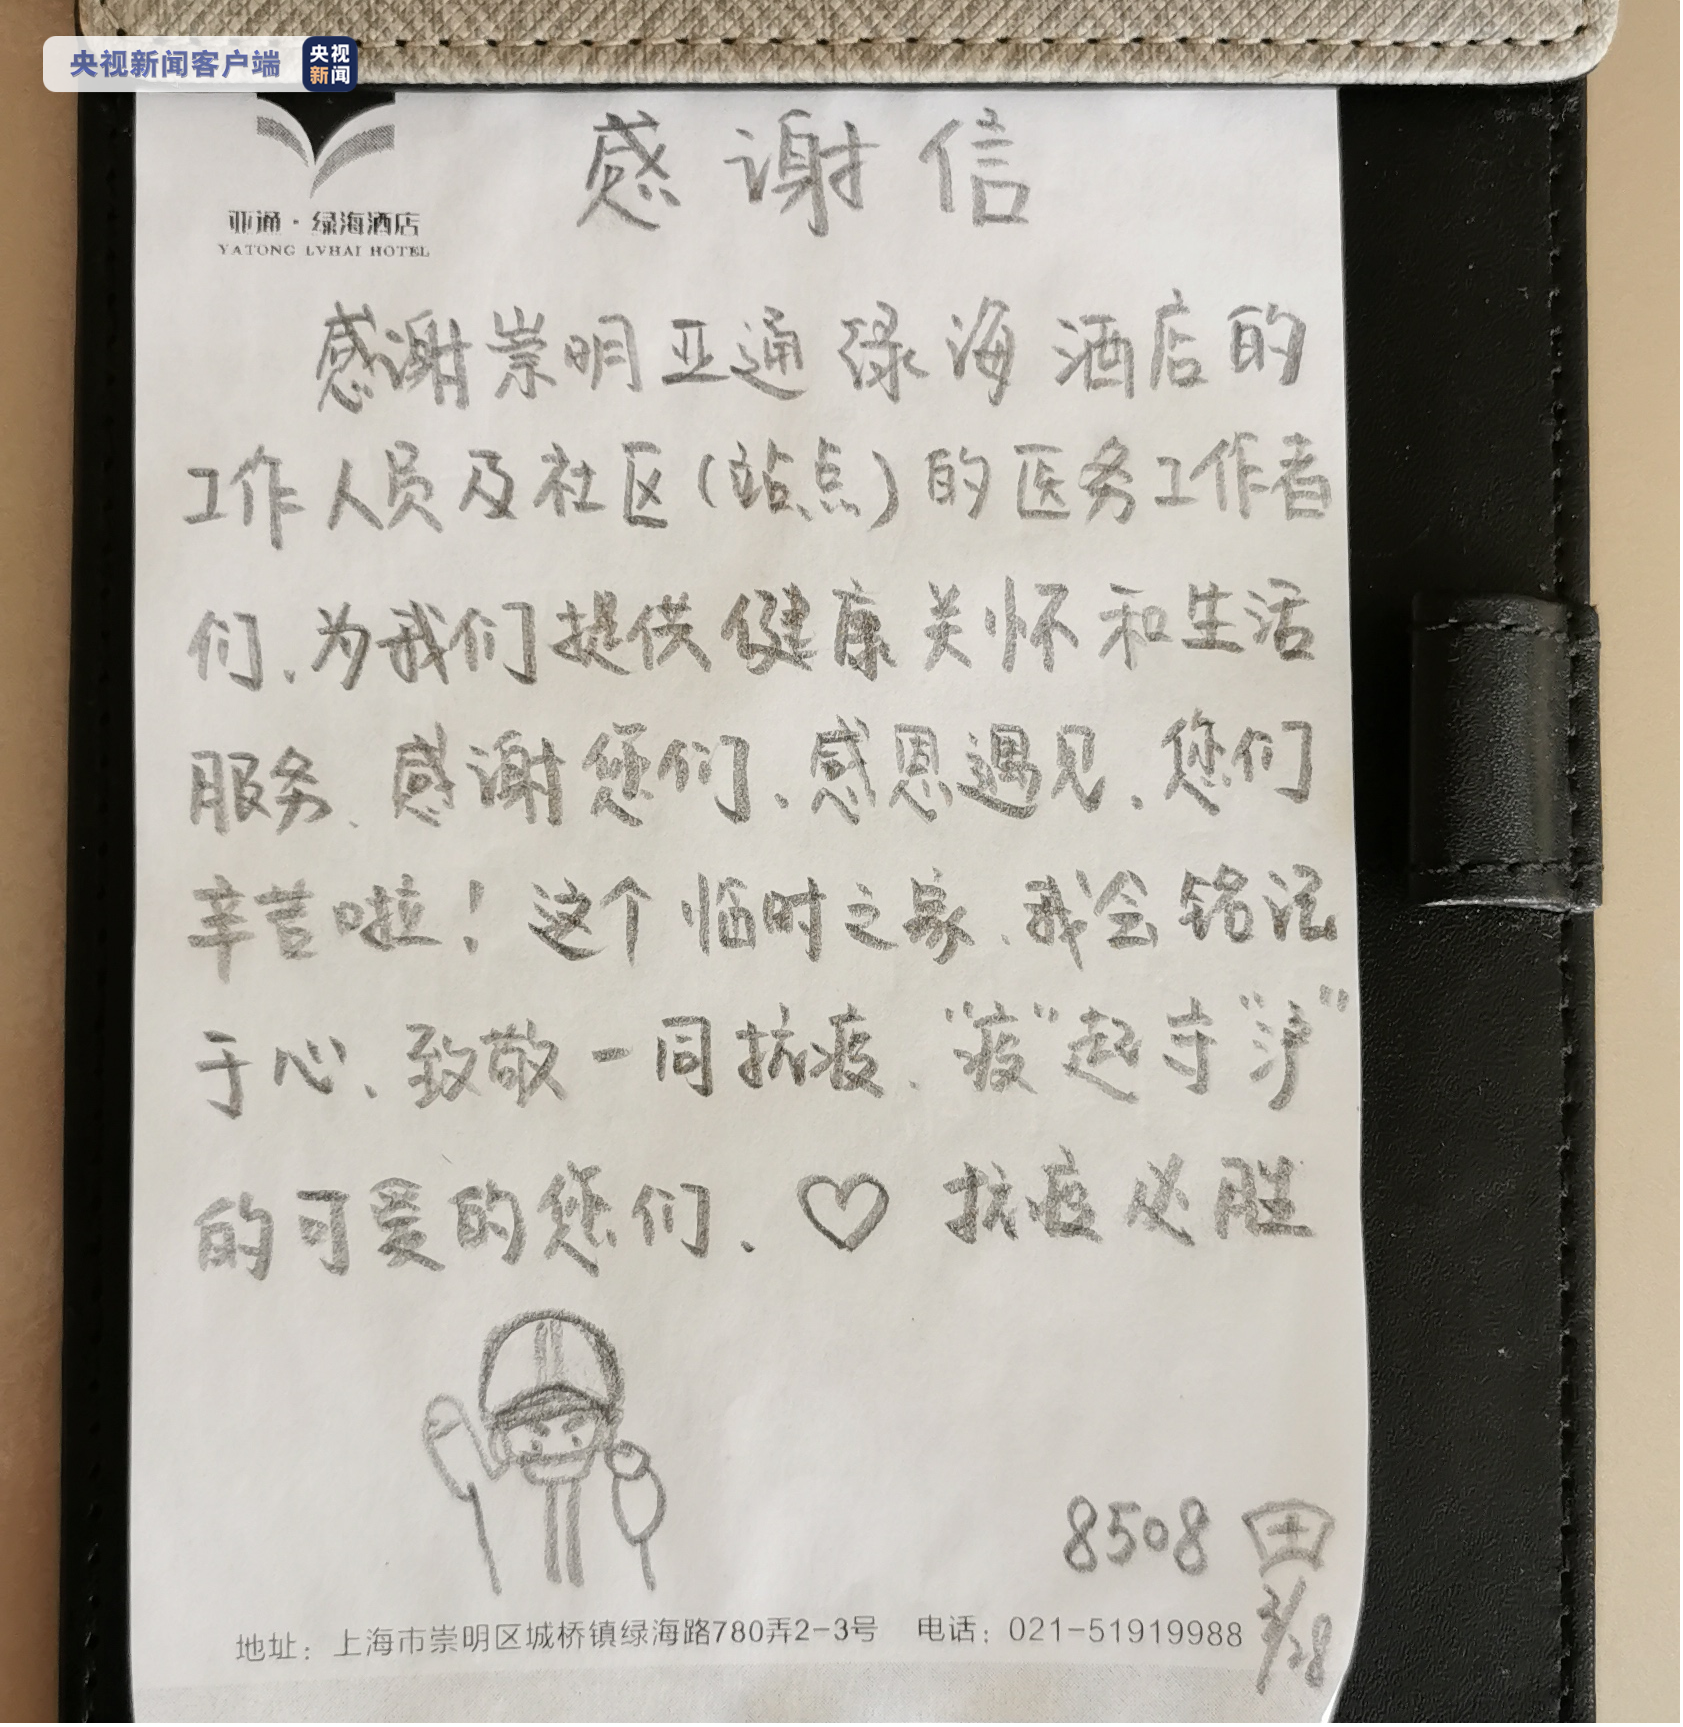 央视新闻客户端
央视
新闻
亚通·绿海酒店
YATONG LVHAI HOTEL
感谢信
感谢崇明亚通绿海酒店的
工作人员及社区(站点)的医务工作者
们、为我们提供健康关怀和生活
服务、感谢您们、感恩遇见、您们
辛苦啦!这个临时之家、我会铭记
于心、致敬一同抗疫、“疫”起守“沪”
的可爱的您们、♡ 抗疫必胜
8508
3/28
地址：上海市崇明区城桥镇绿海路780弄2-3号 电话：021-51919988